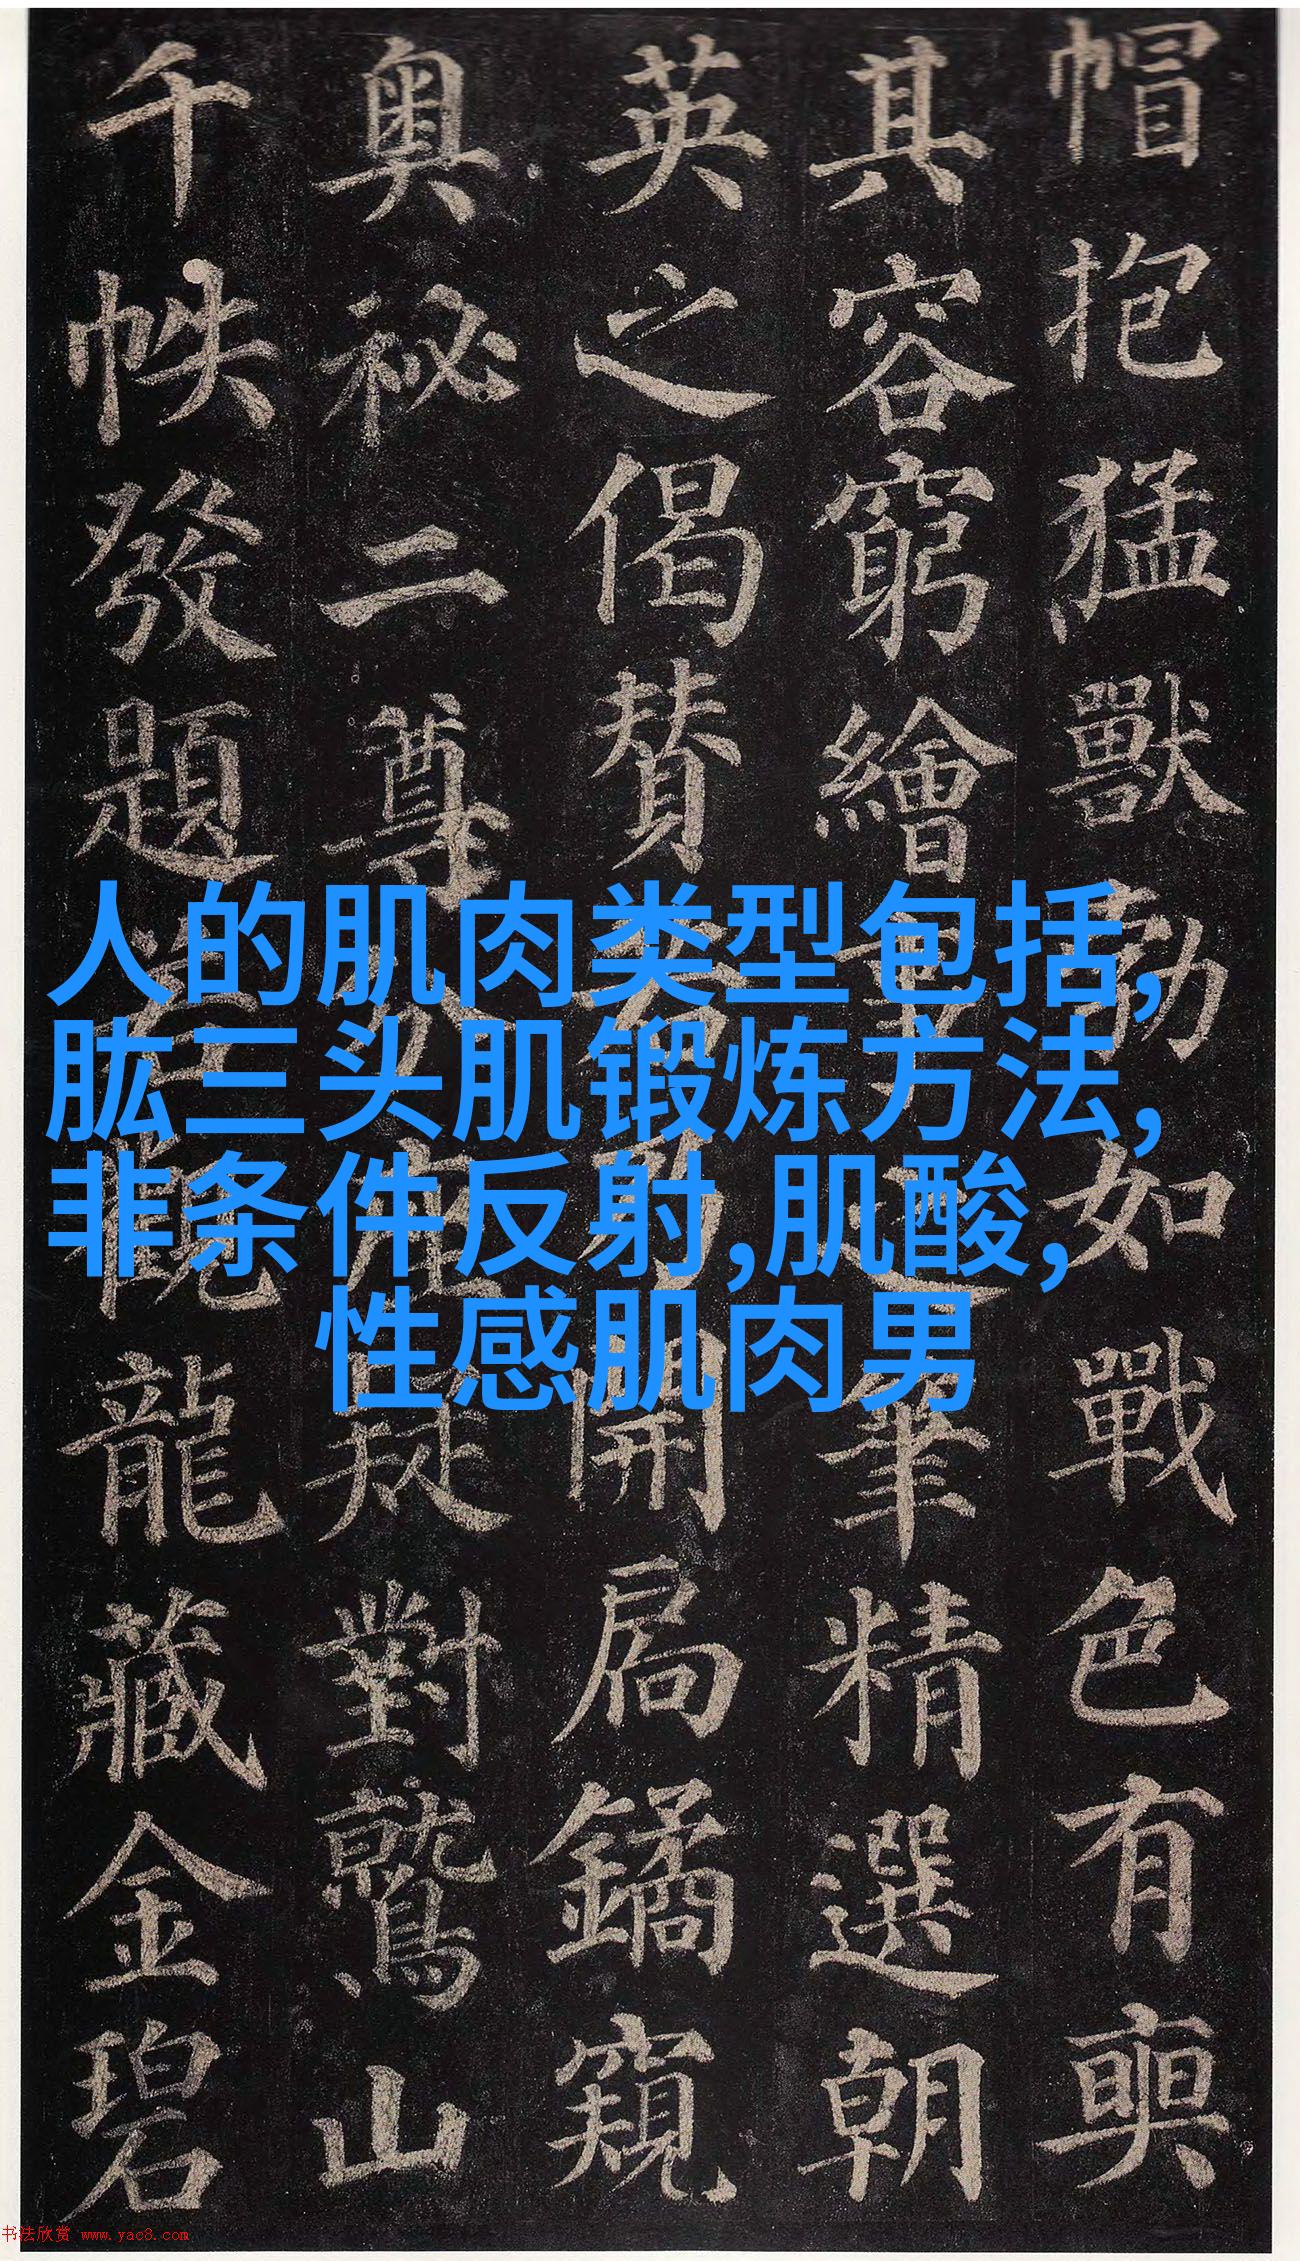 帽抱猛獸勃如戰色有奭
其容窮繪事之筆精選朝
英之偈贊若乃開扃鐍窺
奧祕二尊分座疑對鷲山
千帙發題若觀龍藏金碧
人的肌肉类型包括,
肱三头肌锻炼方法,
非条件反射,肌酸,
性感肌肉男
书法欣赏 www.yac8.com